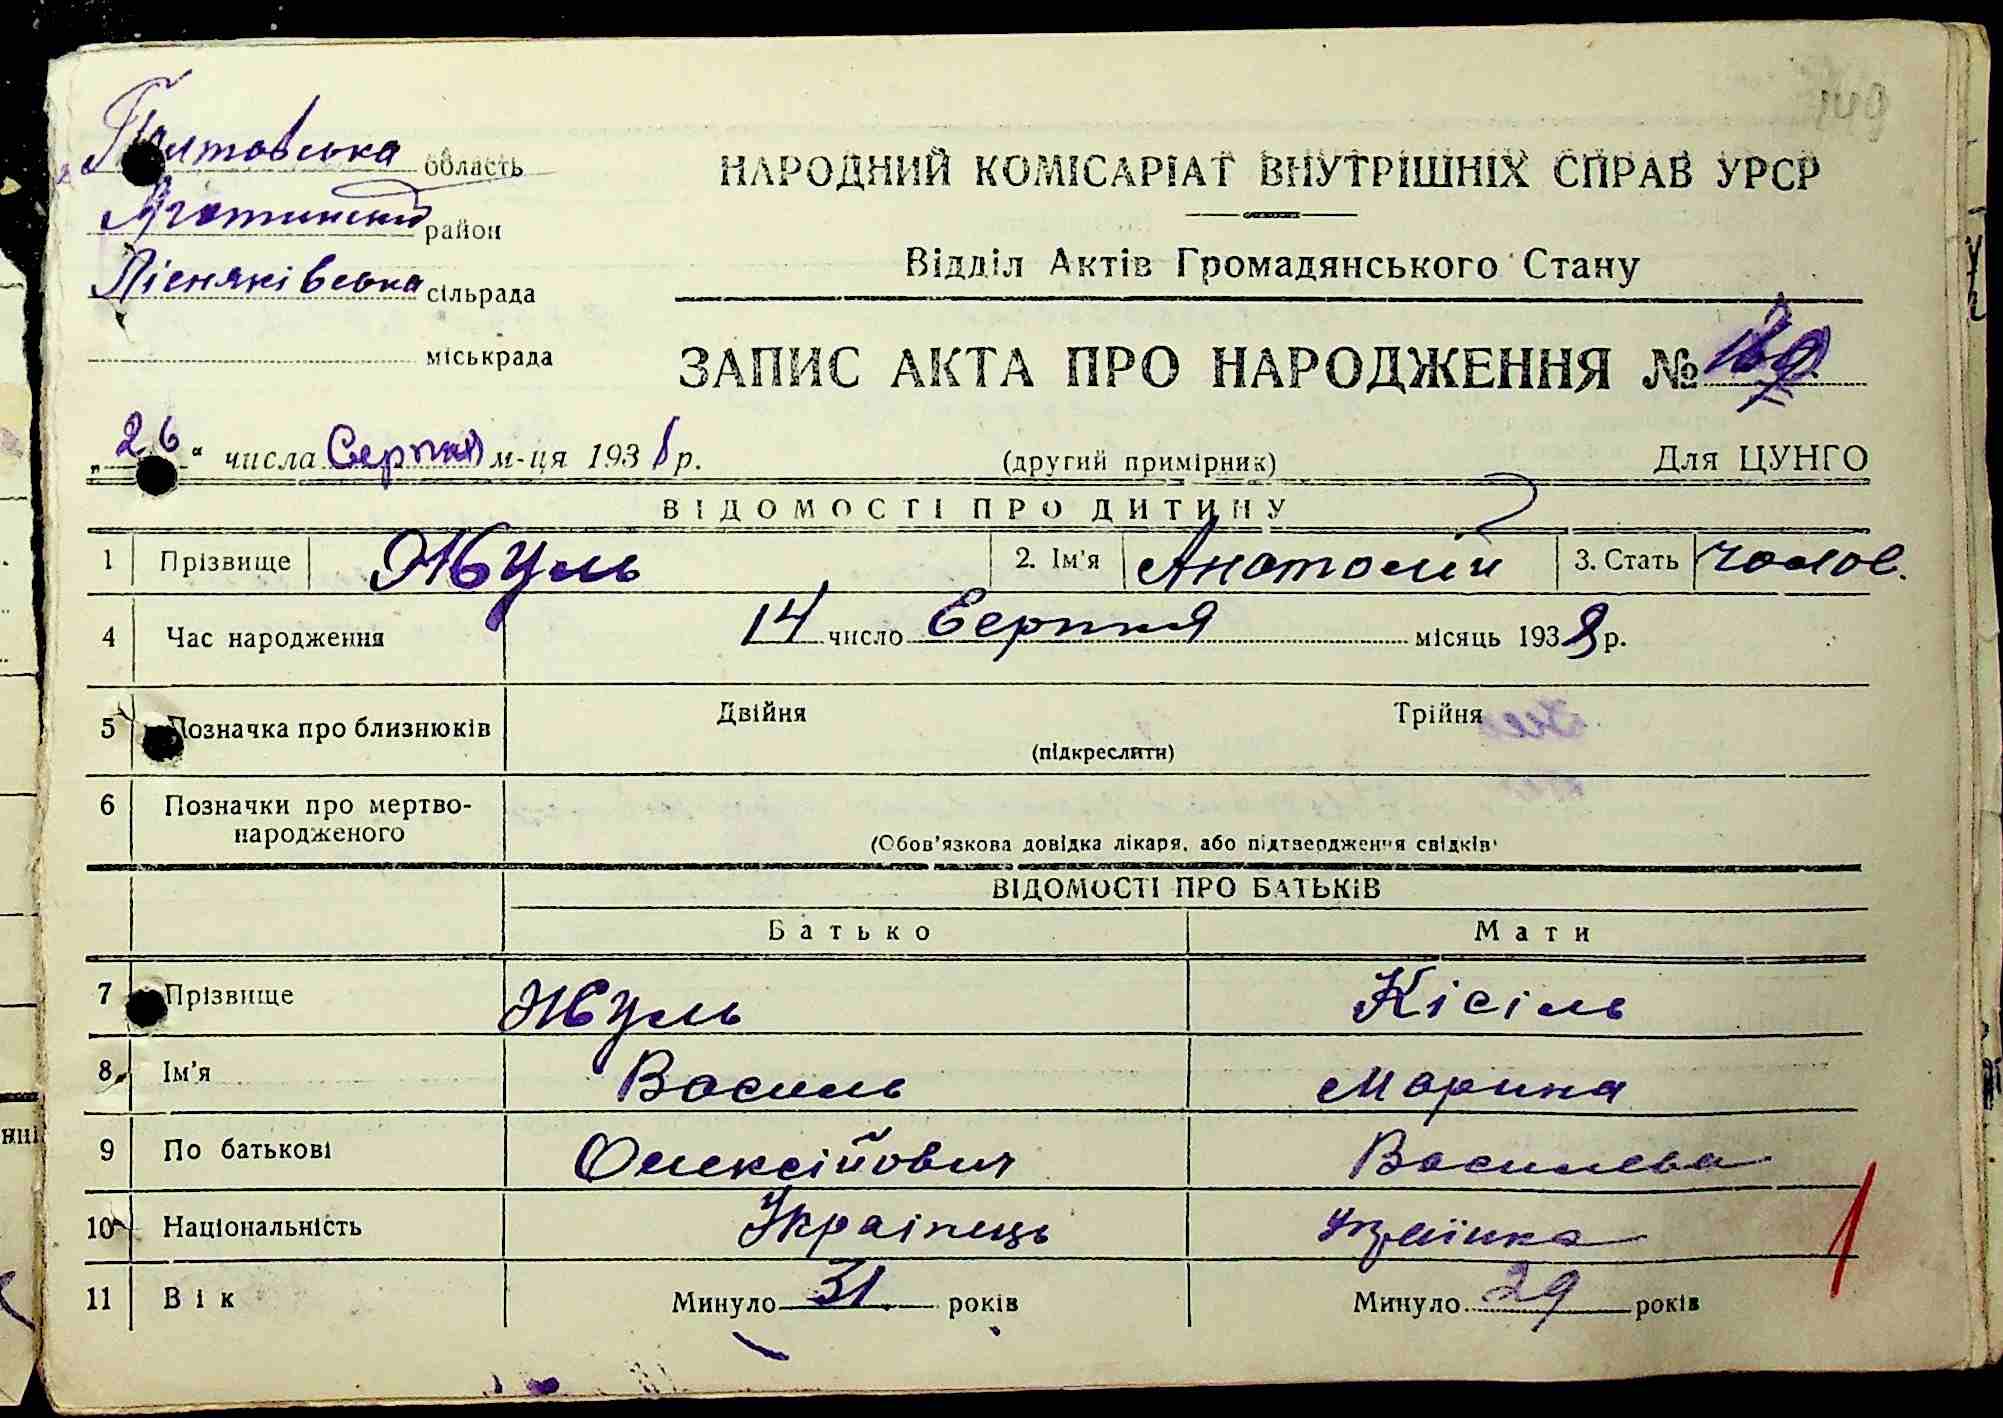 149
Полтовська область
Яготинский район
Лісняківська сільрада
міськрада
НАРОДНИЙ КОМІСАРІАТ ВНУТРІШНІХ СПРАВ УРСР
Відділ Актів Громадянського Стану
ЗАПИС АКТА ПРО НАРОДЖЕННЯ №
„26“ числа Серпня м-ця 1938 р.
(другий примірник)
Для ЦУНГО
ВІДОМОСТІ ПРО ДИТИНУ
1 Прізвище Жуль 2. Ім'я Анатолій 3. Стать чолов.
4 Час народження 14 число Серпня місяць 1938 р.
5 Позначка про близнюків Двійня Трійня
(підкреслити)
6 Позначки про мертво-
народженого
(Обов'язкова довідка лікаря, або підтвердження свідків)
ВІДОМОСТІ ПРО БАТЬКІВ
Батько Мати
7 Прізвище Жуль Кісіль
8 Ім'я Василь Марина
9 По батькові Олексійович Василева
10 Національність Українець Українка
11 Вік Минуло 31 років Минуло 29 років